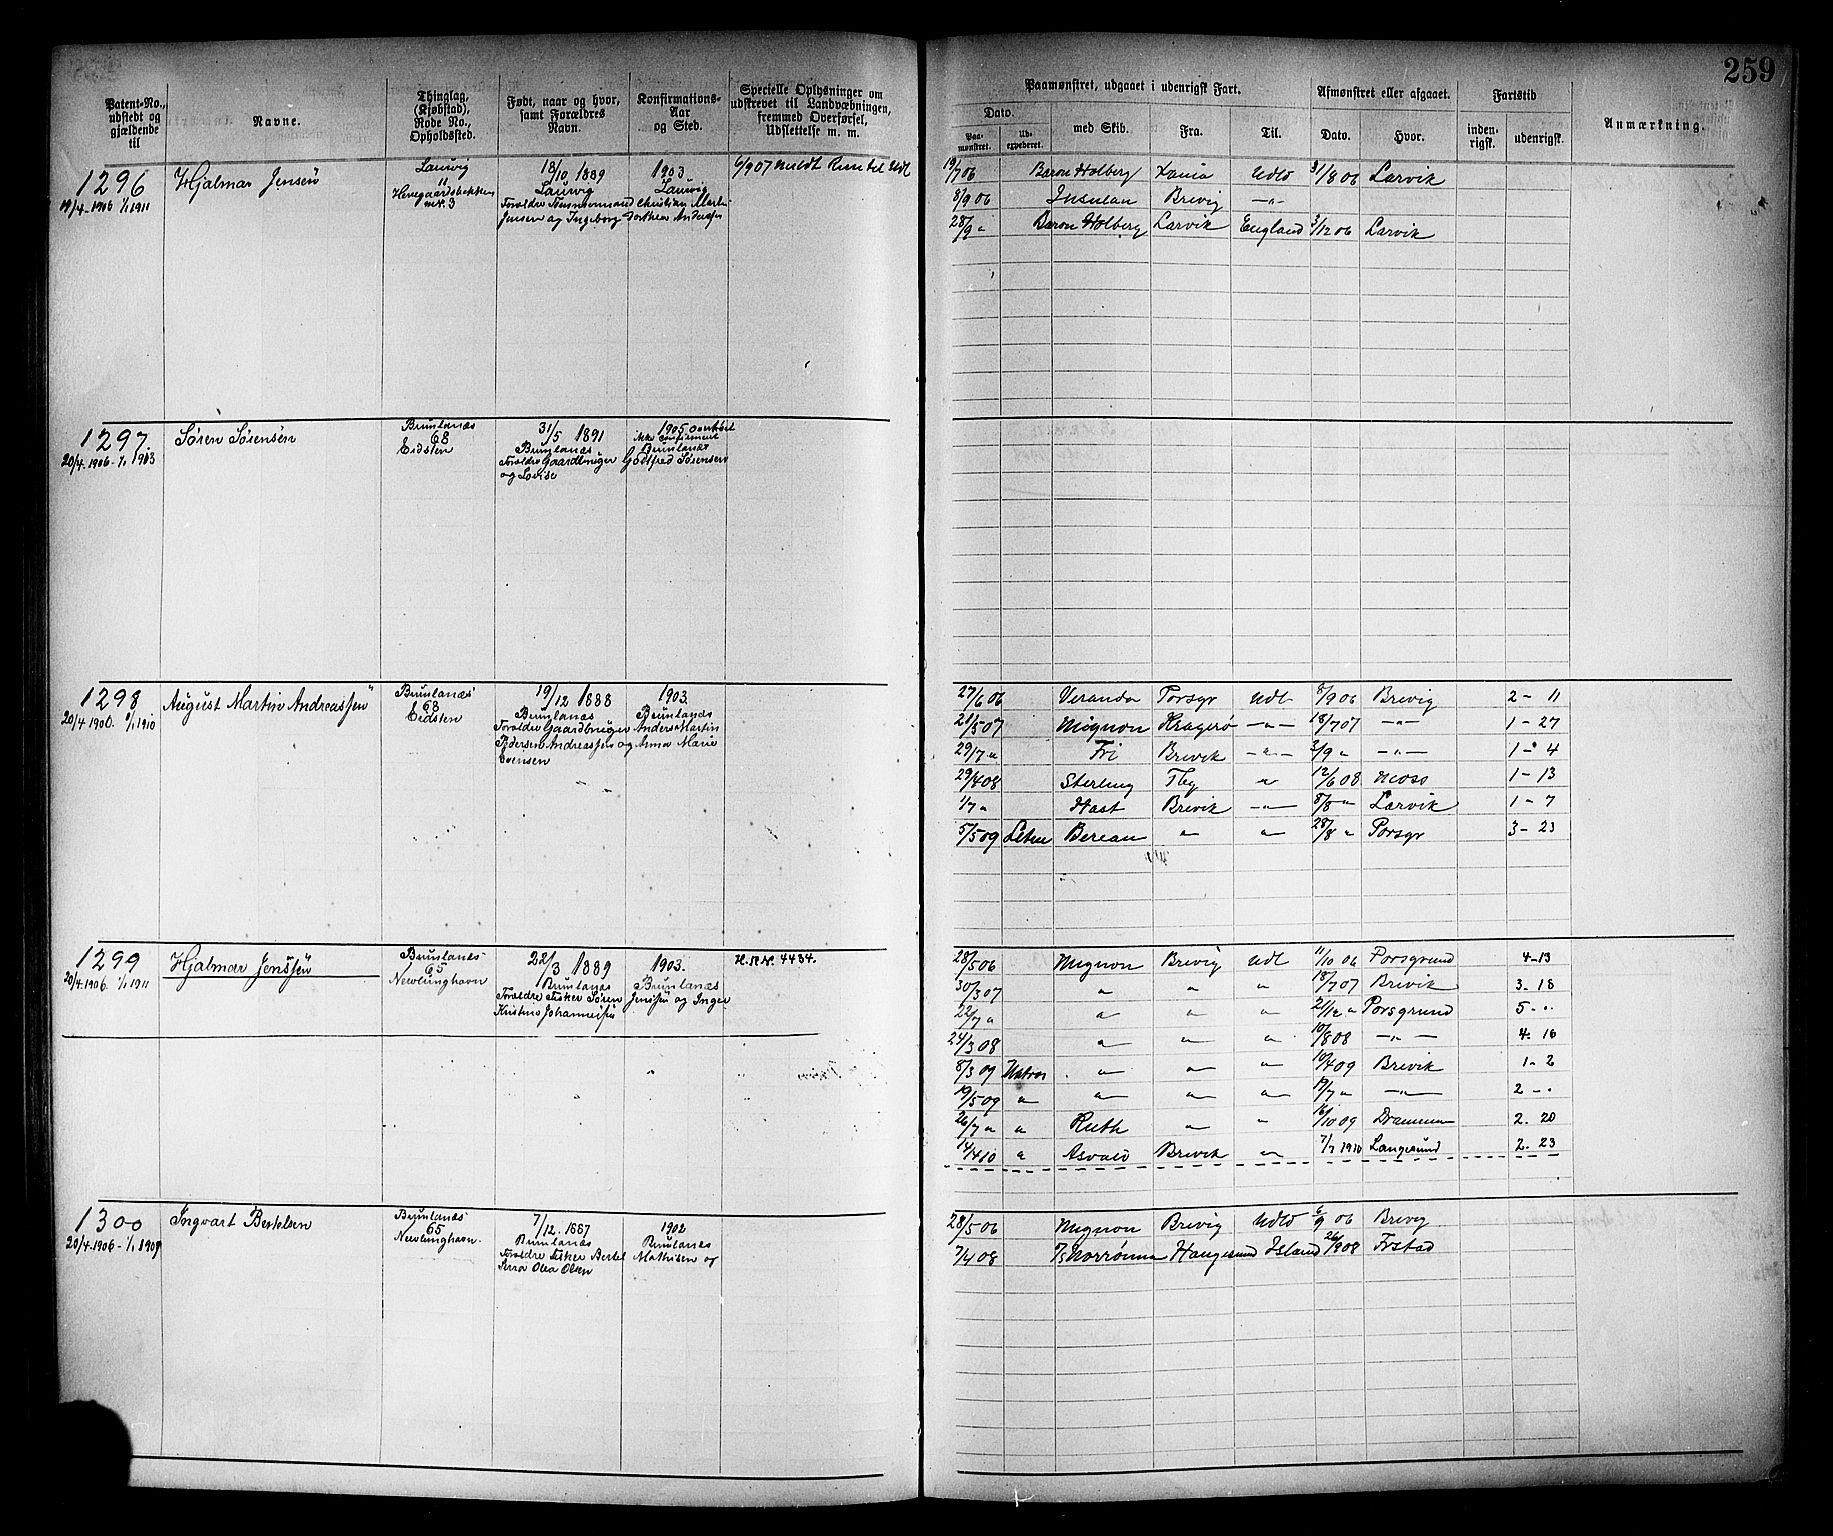 259
Patent-No., udstedt og gjældende til
Navne.
Thinglag, (Kjøbstad), Rode No., Opholdssted.
Født, naar og hvor, samt Forældres Navn.
Konfirmations-Aar og Sted.
Specielle Oplysninger om udskrevet til Landvæbningen, fremmed Overførsel, Udslettelse m. m.
Paamønstret, udgaaet i udenrigsk Fart.
Dato.
Paa-mønstret.
Ud-expederet.
med Skib.
Fra.
Til.
Afmønstret eller afgaaet.
Dato.
Hvor.
Fartstid
inden-rigsk.
udenrigsk.
Anmærkning.
1296 Hjalmar Jensen
19/4-1906 1/1 1911
Laurvig
11
18/10 1889
Laurvig
1903
Laurvig
Christian Martin
Jensen og Ingeborg Dorthea Andersen
6/9 07
19/7 06 Baron Holberg Udld 31/8 06 Larvik
8/9 06 Insulan Brevig -"-
28/9 " Baron Holberg Larvik England 3/12 06 Larvik
1297 Søren Sørensen
20/4-1906-1/1 1913
Brunlanæs
68
Eidsten
31/5 1891
Brunlanæs
Forældre Gaardbruger Godtfred Sørensen
og Lovise
1905 overhørt
ikke confirmeret
Brunlanæs
1298 August Martin Andreassen
20/4-1906. 1/1 1910
Brunlanæs
68
Eidsten
19/12 1888
Brunlanæs
Forældre Gaardbruger Anders Martin
Pedersen Andreassen og Anna Marie
Evensen
1903.
Brunlanæs
27/6 06 Veranda Porsgr Udl 8/9 06 Brevig 2-11
21/5 07 Mignon Kragerø -"- 18/7 07 -"- 1-27
29/7 " Fri Brevik -"- 3/9 " -"- 1-4
29/4 08 Sterling Tbg " 12/6 08 Moss 1-13
1/7 " Hast Brevik -"- 8/8 " Larvik 1-7
5/5 09 Letm Berean " " 28/8 " Porsgr 3-23
1299 Hjalmar Jenssen
20/4-1906. 1/1 1911
Brunlanæs
65
Nevlunghavn
22/3 1889
Brunlanæs
Forældre Fisker Søren
Kristine Johannessen
1903.
Brunlanæs
Jenssen og Inger
H.R.Nr. 4434.
28/5 06 Mignon Brevig Udl 11/10 06 Porsgrund 4-13
30/3 07 " " " 18/7 07 Brevik 3-18
22/7 " " " " 21/12 " Porsgrund 5-"
24/3 08 " " " 10/8 08 -"- 4-16
8/3 09 Matros " " " 10/4 09 Brevik 1-2
19/5 09 " " " " 19/7 " -"- 2-"
26/7 " " Ruth " " 16/10 09 Drammen 2-20
14/4 10 " Asvald Brevik " 7/7 1910 Langesund 2-23
1300 Ingvart Bertelsen
20/4-1906-1/1 1909
Brunlanæs
65
Nevlunghavn.
7/12. 1887
Brunlanæs
Forældre Fisker Bertel
Serra Olea Olsen
1902
Brunlanæs
Mathisen og
28/5 06 Mignon Brevig Udld 6/9 06 Brevig
7/4 08 T/s Norrønna Haugesund Island 26/9 08 Frstad